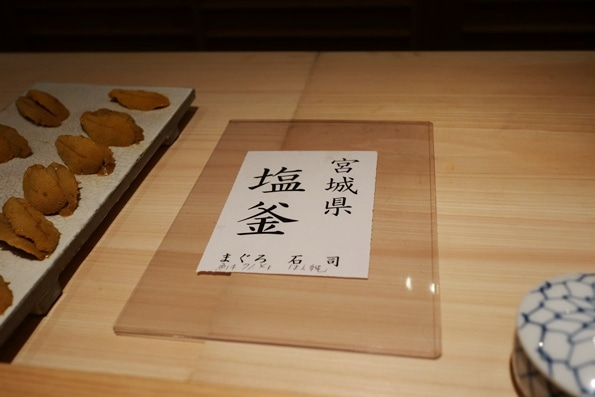 宮城県
塩釜
まぐろ 石司